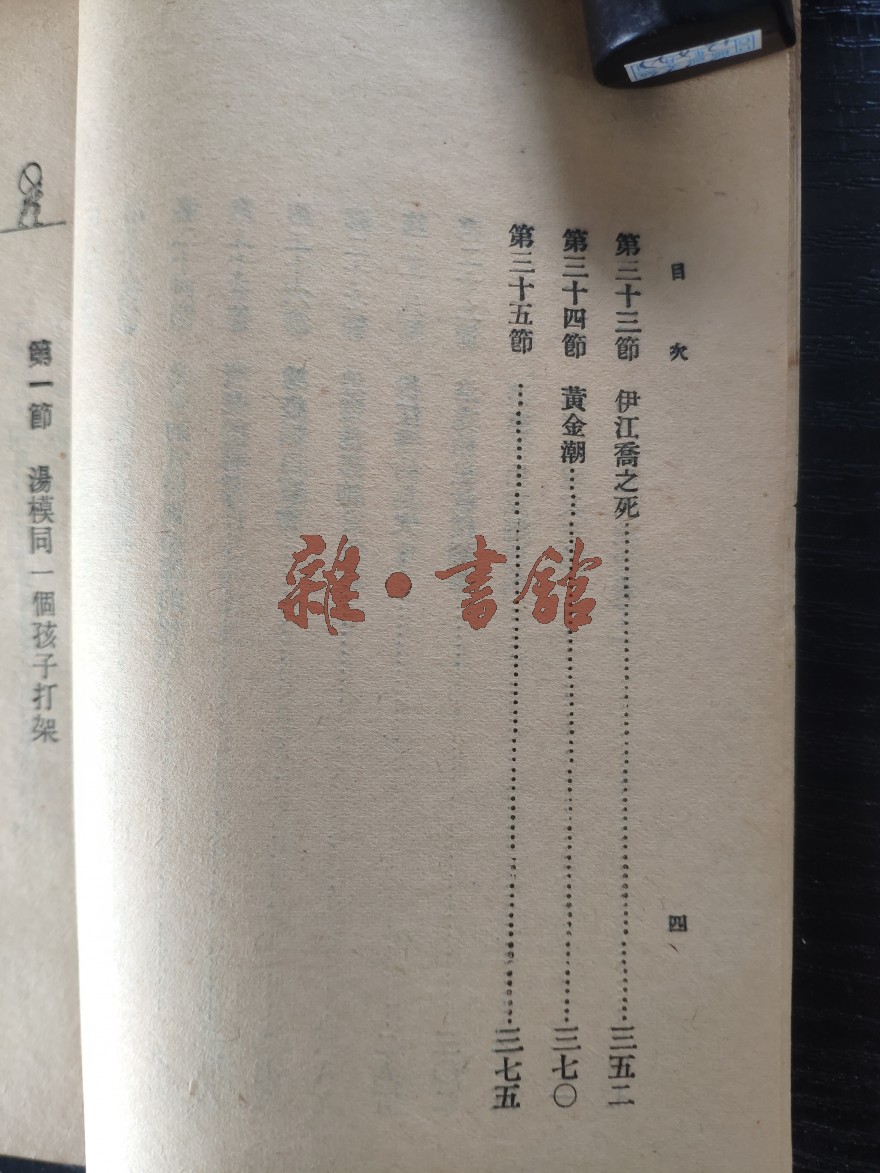 目次
四
第三十三節 伊江喬之死……三五二
第三十四節 黃金潮……三七〇
第三十五節 ……三七五
第一節 湯模同一個孩子打架
雜·書館